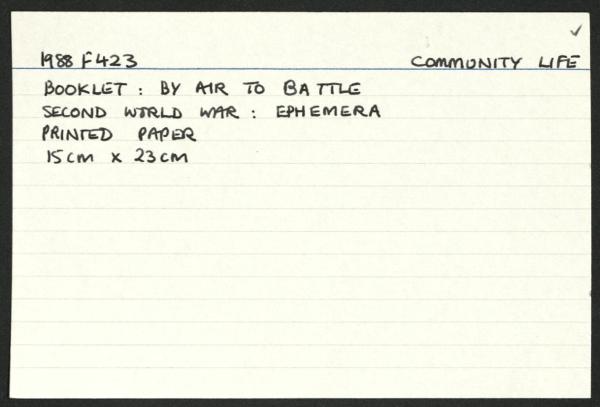 1988 F423 COMMUNITY LIFE
BOOKLET : BY AIR TO BATTLE
SECOND WORLD WAR : EPHEMERA
PRINTED PAPER
15cm x 23cm